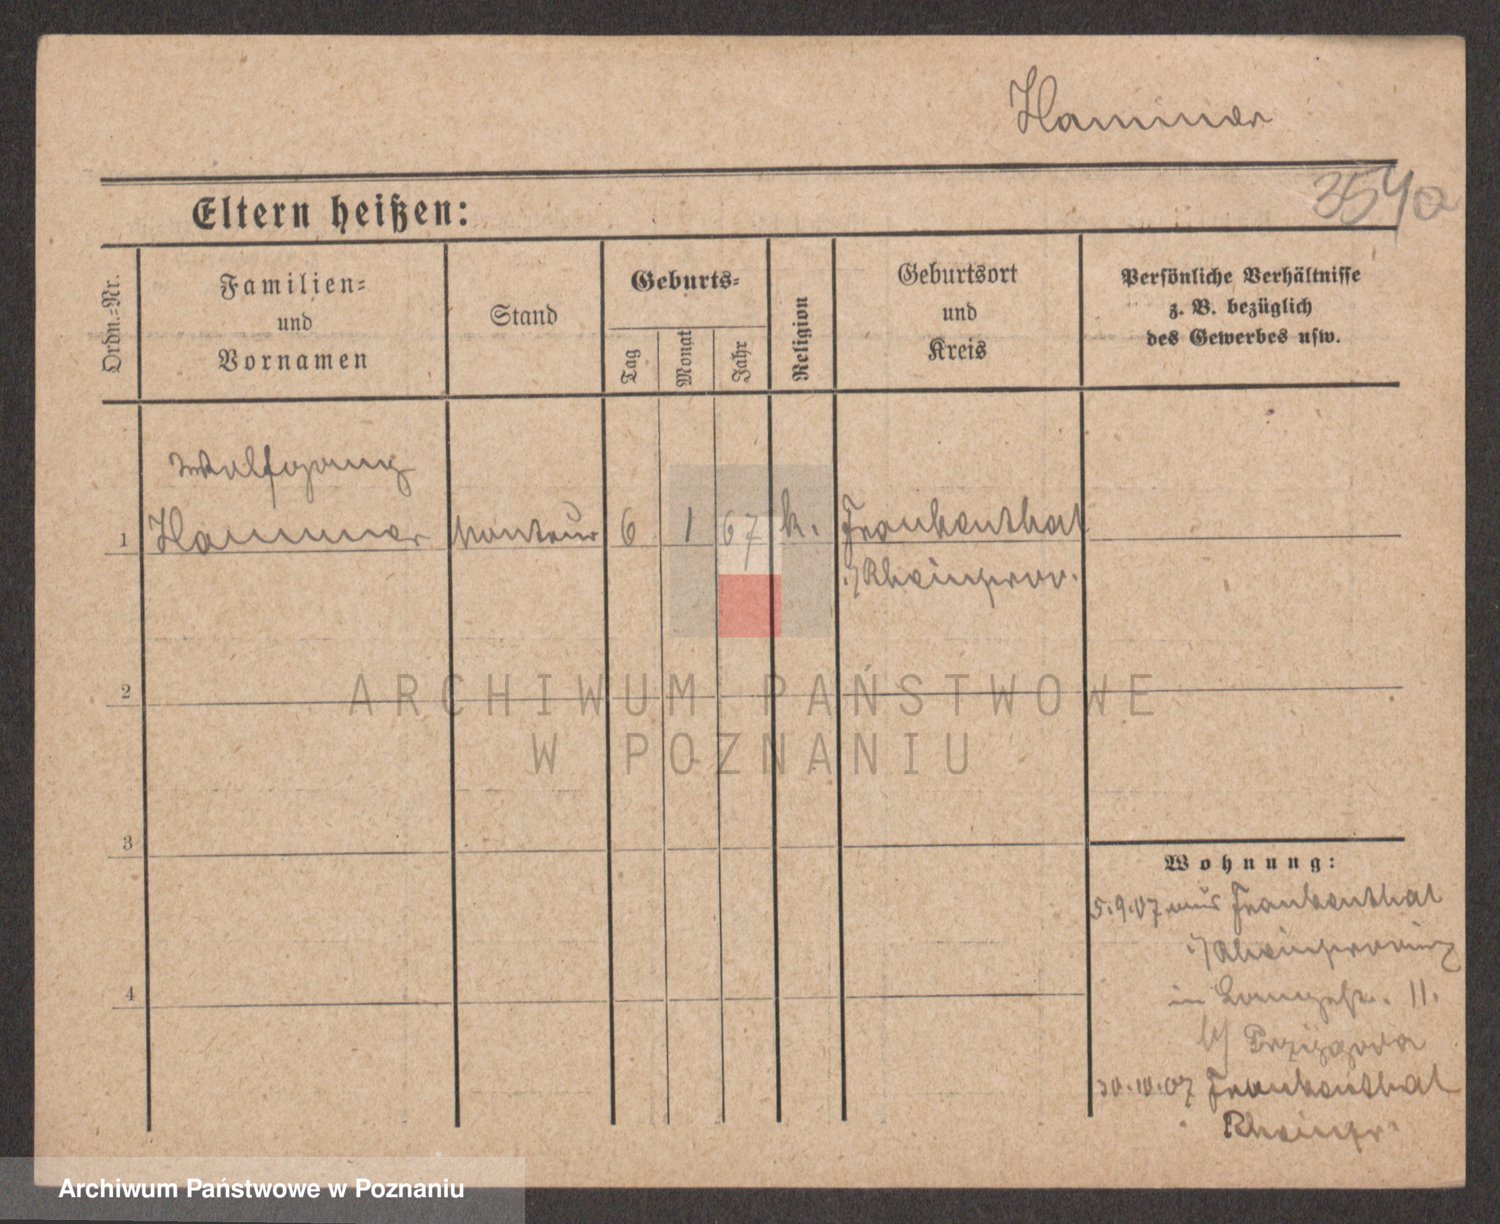 Hammer
354a
Eltern heißen:
Ordn.-Nr.
Familien-
und
Vornamen
Stand
Geburts-
Tag
Monat
Jahr
Religion
Geburtsort
und
Kreis
Persönliche Verhältnisse
z. B. bezüglich
des Gewerbes usw.
Wolfgang
1 Hammer Monteur 6 1 67 k. Frankenthal
i/ Rheinprov.
2
3
4
Wohnung:
5.9.07 aus Frankenthal
i/ Rheinprovinz
in Langestr. 11.
b/ Przygoda
30.10.07 Frankenthal
Rheinpr.
ARCHIWUM PAŃSTWOWE
W POZNANIU
Archiwum Państwowe w Poznaniu